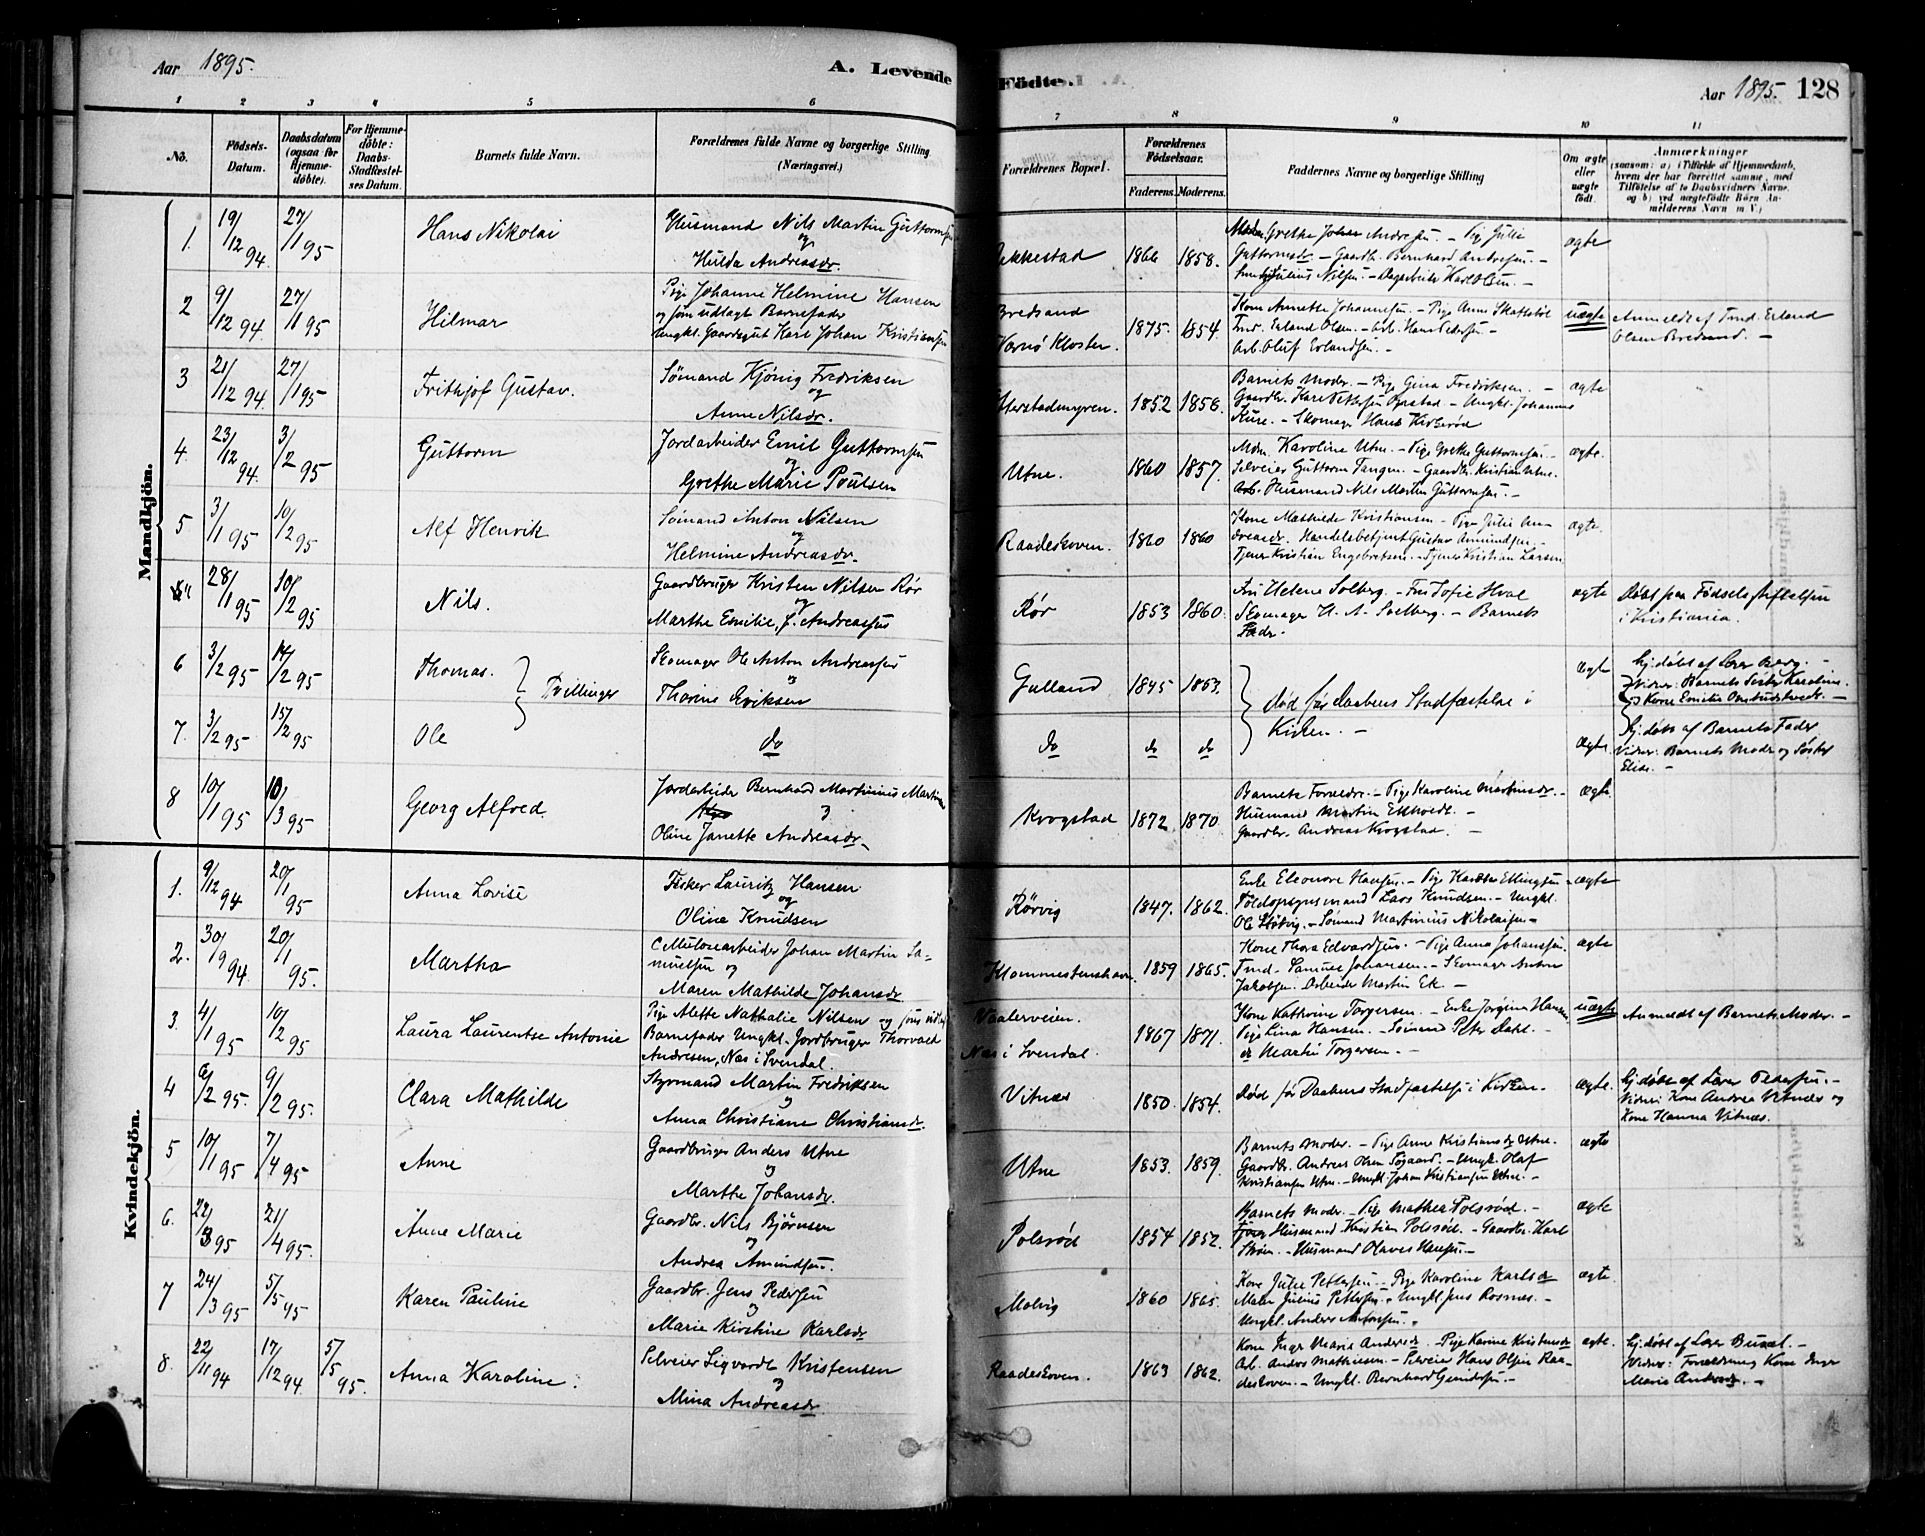 Aar 1895.
A. Levende
Födte.
Aar 1895. 128
1 2 3 4 5 6 7 8 9 10 11
No.
Födsels-Datum.
Daabsdatum (ogsaa for Hjemmedöbte).
For Hjemmedöbte: Daabs-Stadfæstelses Datum.
Barnets fulde Navn.
Forældrenes fulde Navne og borgerlige Stilling (Næringsvei.)
Forældrenes Bopæl.
Forældrenes Födselsaar.
Faderens. Moderens.
Faddernes Navne og borgerlige Stilling
Om ægte eller uægte födt.
Anmærkninger
(saasom: a) i Tilfælde af Hjemmedaab, hvem der har forrettet samme, med Tilföielse af to Daabsvidners Navne. og b) ved uægtefödte Börn Anmelderens Navn m. V.)
Mandkjön.
1. 19/12 94. 27/1 95 Hans Nikolai
Husmand Nils Martin Guttormsen
og
Hulda Andreasdr.
1866 1858.
Grethe Johan Andresen. – Pige Julie
Guttormsdr – Gaardb. Bernhard Andresen. –
Julius Nilsen. – Dagarbeider Karl Olsen. –
ægte
2 9/12 94. 27/1 95 Hilmar
Pige Johanne Helmine Hansen
og som udlagt Barnefader
Ungkl. Gaardsgut Karl Johan Kristiansen
Bredsand
Værnö Kloster.
1875. 1854
Kone Annette Johannesen. – Pige Anne
Tmd. Erland Olsen. – Arb. Hans Pedersen –
Arb. Oluf Erlandsen. –
uægte
Anmeldt af Tmd. Erland
Olsen Bredsand. –
3 21/12 94. 27/1 95 Frithjof Gustav.
Sömand Kjönig Fredriksen
og
Anne Nilsdr.
1852 1858.
Barnets Moder. – Pige Gina Fredriksen. –
Gaardbr. Karl Pettersen – Ungkl. Johannes
Kure. – Skomager Hans Kirkeröd
ægte
4. 23/12 94. 3/2 95 Guttorm
Jordarbeider Emil Guttormsen
og
Grethe Marie Poulsen
Utne.
1860 1857.
Mdm. Karoline Utne. – Pige Grethe Guttormsen. –
Selveier Guttorm Tangen. – Gaardb. Kristian Utne.
Arb. Husmand Nils Martin Guttormsen. –
ægte.
5 3/1 95 10/2 95 Alf Henrik
Sömand Anton Nilsen
og
Helmine Andreasdr.
Raadeskoven.
1860 1860
Kone Mathilde Kristiansen – Pige Julie An-
dreasdr. Handelsbetjent Gustav Amundsen. –
Tjener Kristian Engebretsen. – Tjener Kristian Larsen
ægte.
28/1 95 10/2 95 Nils.
Gaardbruger Kristen Nilsen Rör
og
Marthe Emilie, f. Andreassen
Rör
1853 1860.
Fru Helene Solberg. – Fru Sofie Hval
Skomager H. A. Solberg. – Barnets
Fader.
ægte
Döbt paa Födselsstiftelsen
i Kristiania.
6 3/2 95 14/2 95 Thomas. } Tvillinger
Skomager Ole Anton Andreassen
og
Thorine Eriksen
Gulland
1845 1853.
Död för Daabens Stadfæstelse i
Kirken. –
ægte
Hj. döbt af Lærer Berg. –
Vidner: Barnets Söster Karoline
7. 3/2 95 15/2 95 Ole
do
do do do
Ægte
Hj. döbt af Barnets Fader
Vidner: Barnets Moder og Söster
Elise. –
8 10/1 95 10/3 95 Georg Alfred.
Jordarbeider Bernhard Martinius
og
Oline Janette Andreasdr.
Krogstad
1872 1870
Barnets Forældre. – Pige Karoline Martinsdr. –
Husmand Martin Ekholdt. –
Gaardbr. Andreas Krogstad. –
Ægte.
Kvindekjön.
1. 9/12 94 20/1 95 Anna Lovise
Fisker Lauritz Hansen
og
Olina Knudsen
Rörvig
1847. 1862.
Enke Eleonore Hansen. – Pige Kaethe Ellingsen –
Toldopsynsmand Lars Knudsen. – Ungkl.
Ole – Sömand Martinius Nikolaisen –
ægte
2. 30/9 94 20/1 95. Martha
Cellulosearbeider Johan Martin Sa-
muelsen og
Maren Mathilde Johansdr
1859 1865.
Kone Thora Edvardsen. – Pige Anna Johansen.
Tmd. Samuel Johansen. – Skomager Anton
Jakobsen. Arbeider Martin Ek. –
ægte
3. 4/1 95 10/2 95 Laura Laurentse Antonie
Pige Alette Nathalie Nilsen og som udlagt
Barnefader Ungkl. Jordbruger Thorvald
Andresen, Næs i Svendal.
Vaalerveien.
Næs i Svendal.
1867 1871.
Kone Kathrine Torgersen. – Enke Jörgine Hansen
Pige Lina Hansen – Sömand Peter Dahl.
og Martin Torgersen. –
uægte
Anmeldt af Barnets Moder. –
4 6/2 95. 9/2 95. Clara Mathilde
Styrmand Martin Fredriksen
og
Anna Christiane Christiansdr.
Vitnæs
1850. 1854.
Död för Daabens Stadfæstelse i Kirken. –
ægte.
Hj. döbt af Lærer Pedersen. –
Vidner: Kone Andrea Vitnæs og
Kone Hanna Vitnæs.
5 10/1 95 7/4 95 Anne
Gaardbruger Anders Utne
og
Marthe Johansdr.
Utne
1853. 1859.
Barnets Moder. – Pige Anne Kristiansdr Utne.
Gaardbr. Andreas Olsen – Ungkl. Olaf
Kristiansen Utne. – Ungkl. Johan Kristiansen Utne. –
ægte
6. 22/3 95 21/4 95. Anne Marie
Gaardbr. Nils Björnsen
og
Andrea Amundsen.
Polsröd
1854 1852.
Barnets Moder. – Pige Mathea Polsröd. –
Husmand Kristian Polsröd. – Gaardbr. Karl
Ström. – Husmand Olaves Hansen. –
ægte
7 24/3 95 5/5 95 Karen Pauline
Gaardbr. Jens Pedersen
og
Marie Kirstine Karlsdr
Molvig
1860 1865.
Kone Julie Pettersen. – Pige Karoline Karlsdr
Maler Julius Pettersen. – Ungkl Jens Rosnæs. –
Ungkl. Anders Antonsen.
ægte.
8. 22/11 94 17/12 94. 5/5 95. Anna Karoline.
Selveier Sigvardt Kristensen
og
Mina Andreasdr
Raadeskoven.
1863 1862.
Kone Inger Marie Andersdr – Pige Karine Kristensdr
Arb. Anders Mathiesen. – Selveier Hans Olsen Raa-
deskoven. – Ungkl. Bernhard Gundersen. –
ægte.
Hj. döbt af Lærer –
Vidner: Kone Inger
Marie Andersdr. –